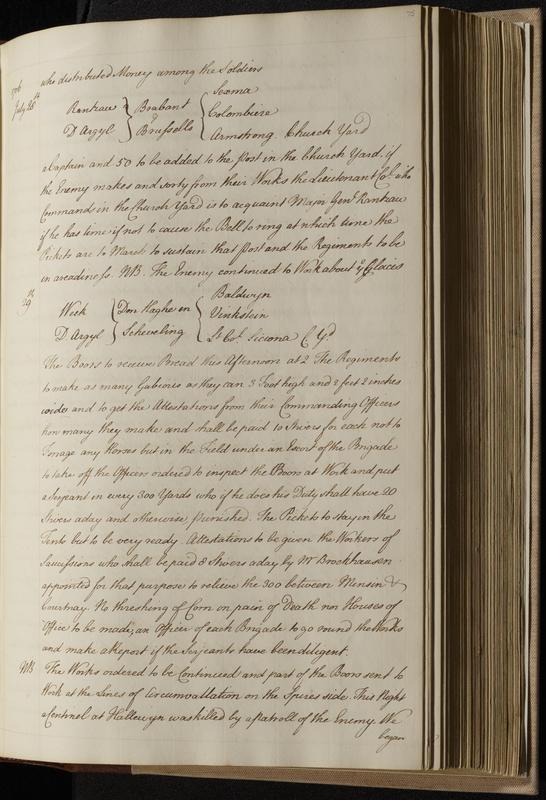 who distributed Money among the Soldiers
706
July 28th
Rantzau } Brabant { Sixma
& Colombiere
D'Argyl } Brussells { Armstrong. Church Yard
a Captain and 50 to be added to the post in the Church Yard, if
the Enemy makes and sorty from their Works the Lieutenant Col. who
Commands in the Church Yard is to acquaint Major Genl Rantzau
if he has time if not to cause the Bell to ring at which time the
Pickets are to March to sustain that post and the Regiments to be
in a readiness. NB. The Enemy continued to Work about ye Glacis
29th
Week } Don Haghe en { Baldwyn
Vinkstein
D'Argyl } Scheveling { Lt Col. Sicoona C Yd
The Boors to receive Bread this Afternoon at 2 The Regiments
to make as many Gabions as they can 3 Foot high and 2 feet 2 inches
wide and to get the Attestations from their Commanding Officers
how many they make and shall be paid 10 Stivers for each not to
Forage any Horses but in the Field under an Escort of the Brigade
to take off the Officers ordered to inspect the Boors at Work and put
a Serjeant in every 300 Yards who if he does his Duty shall have 20
Stivers a day and otherwise, punished. The Pickets to stay in the
Tents but to be very ready. Attestations to be given the Workers of
Saucissions who shall be paid 8 Stivers a day by Mr Brockhausen
appointed for that purpose to relieve the 300 between Menin &
Courtray. No threshing of Corn on pain of Death nor Houses of
Office to be made, an Officer of each Brigade to go round the Works
and make a Report if the Serjeants have been diligent.
NB The Works ordered to be Continued and part of the Boors sent to
Work at the Lines of Circumvallation on the Ypres side. This Night
a Centinel at Hallewyn was killed by a Patroll of the Enemy. We
began